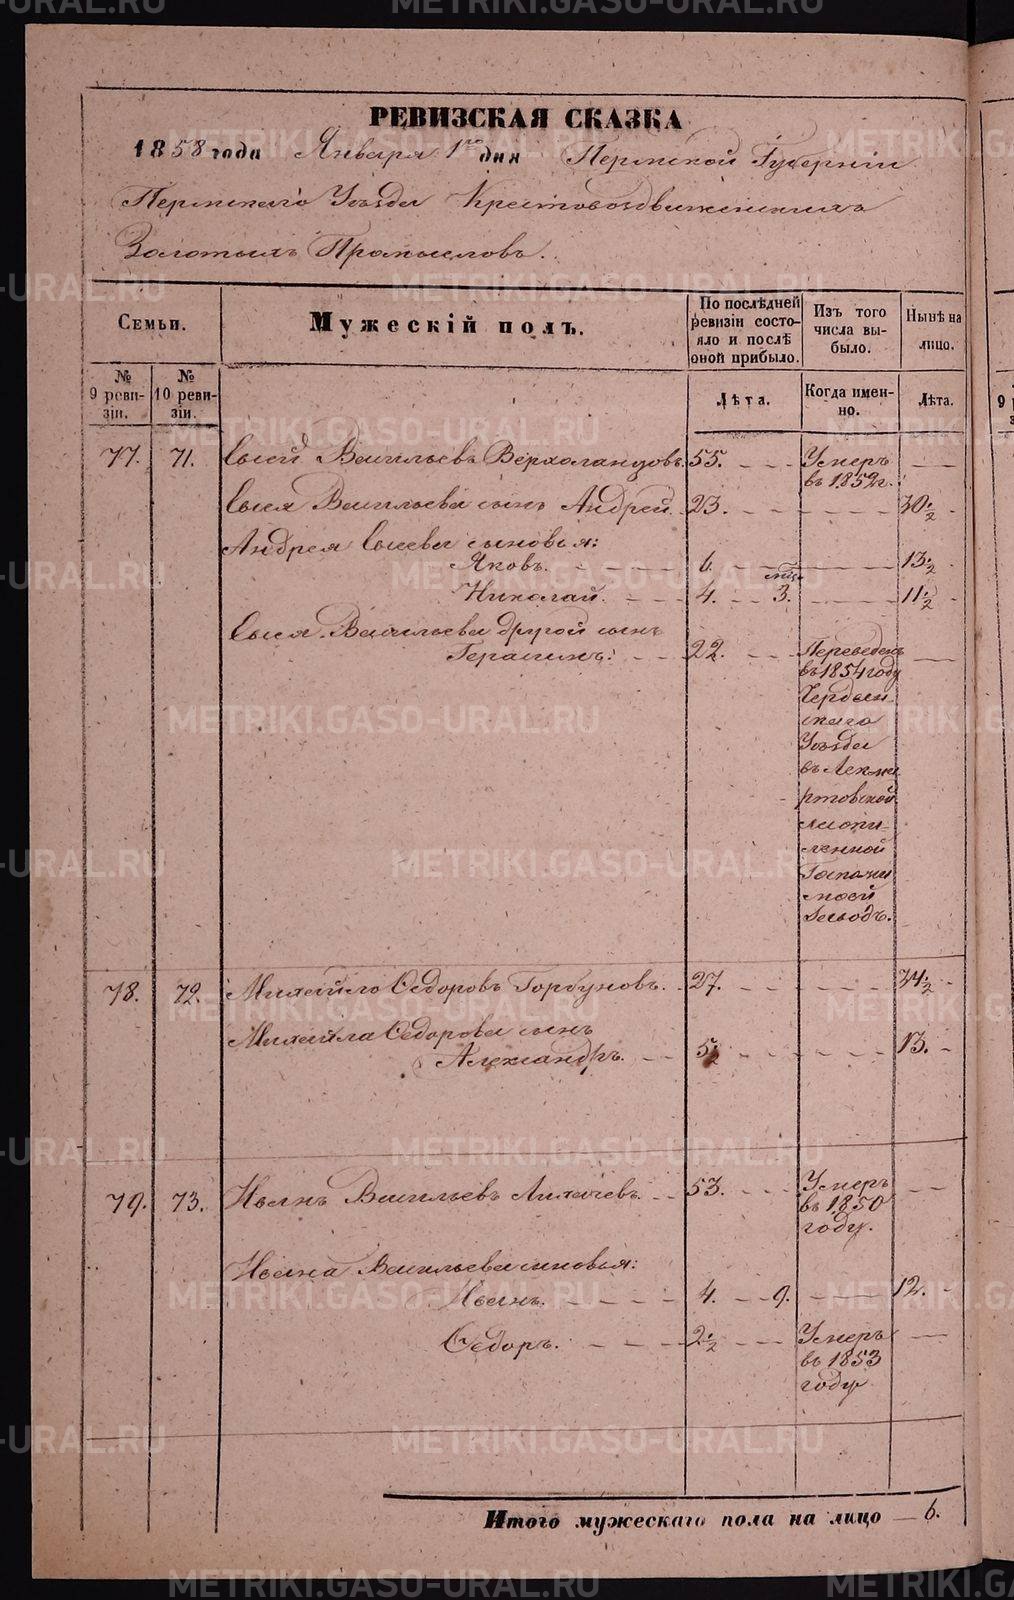 РЕВИЗСКАЯ СКАЗКА
1858 года Января 1го дня Пермской Губерніи
Пермскаго Уѣзда Крестовоздвиженскихъ
Золотыхъ Промысловъ.
Семьи.
Мужескій полъ.
По послѣдней ревизіи состояло и послѣ оной прибыло.
Изъ того числа выбыло.
Нынѣ на лицо.
№ 9 ревизіи.
№ 10 ревизіи.
Лѣта.
Когда именно.
Лѣта.
77. 71. Сысой Васильевъ Верхоланцовъ. 55. Умеръ
въ 1852 г.
Сысоя Васильева сынъ Андрей 23. 30 1/2
Андрея Сысоева сыновья:
Яковъ. 6. 13 1/2
Николай. 4. 3. мѣс. 11 1/2
Сысоя Васильева другой сынъ
Герасимъ. 22. Переведенъ
въ 1854 году
Чердын-
скаго
Уѣзда
въ
лесопи-
ленной
заводъ.
78. 72. Михайло Ѳедоровъ Горбуновъ. 27. 34 1/2
Михайла Ѳедорова сынъ
Александръ. 5 1/2 13.
79. 73. Иванъ Васильевъ Лихачевъ 53. Умеръ
въ 1850
году.
Ивана Васильева сыновья:
Иванъ. 4. 9. 12.
Ѳедоръ. 2 1/2 Умеръ
въ 1853
году
Итого мужескаго пола на лицо 6.
METRIKI.GASO-URAL.RU